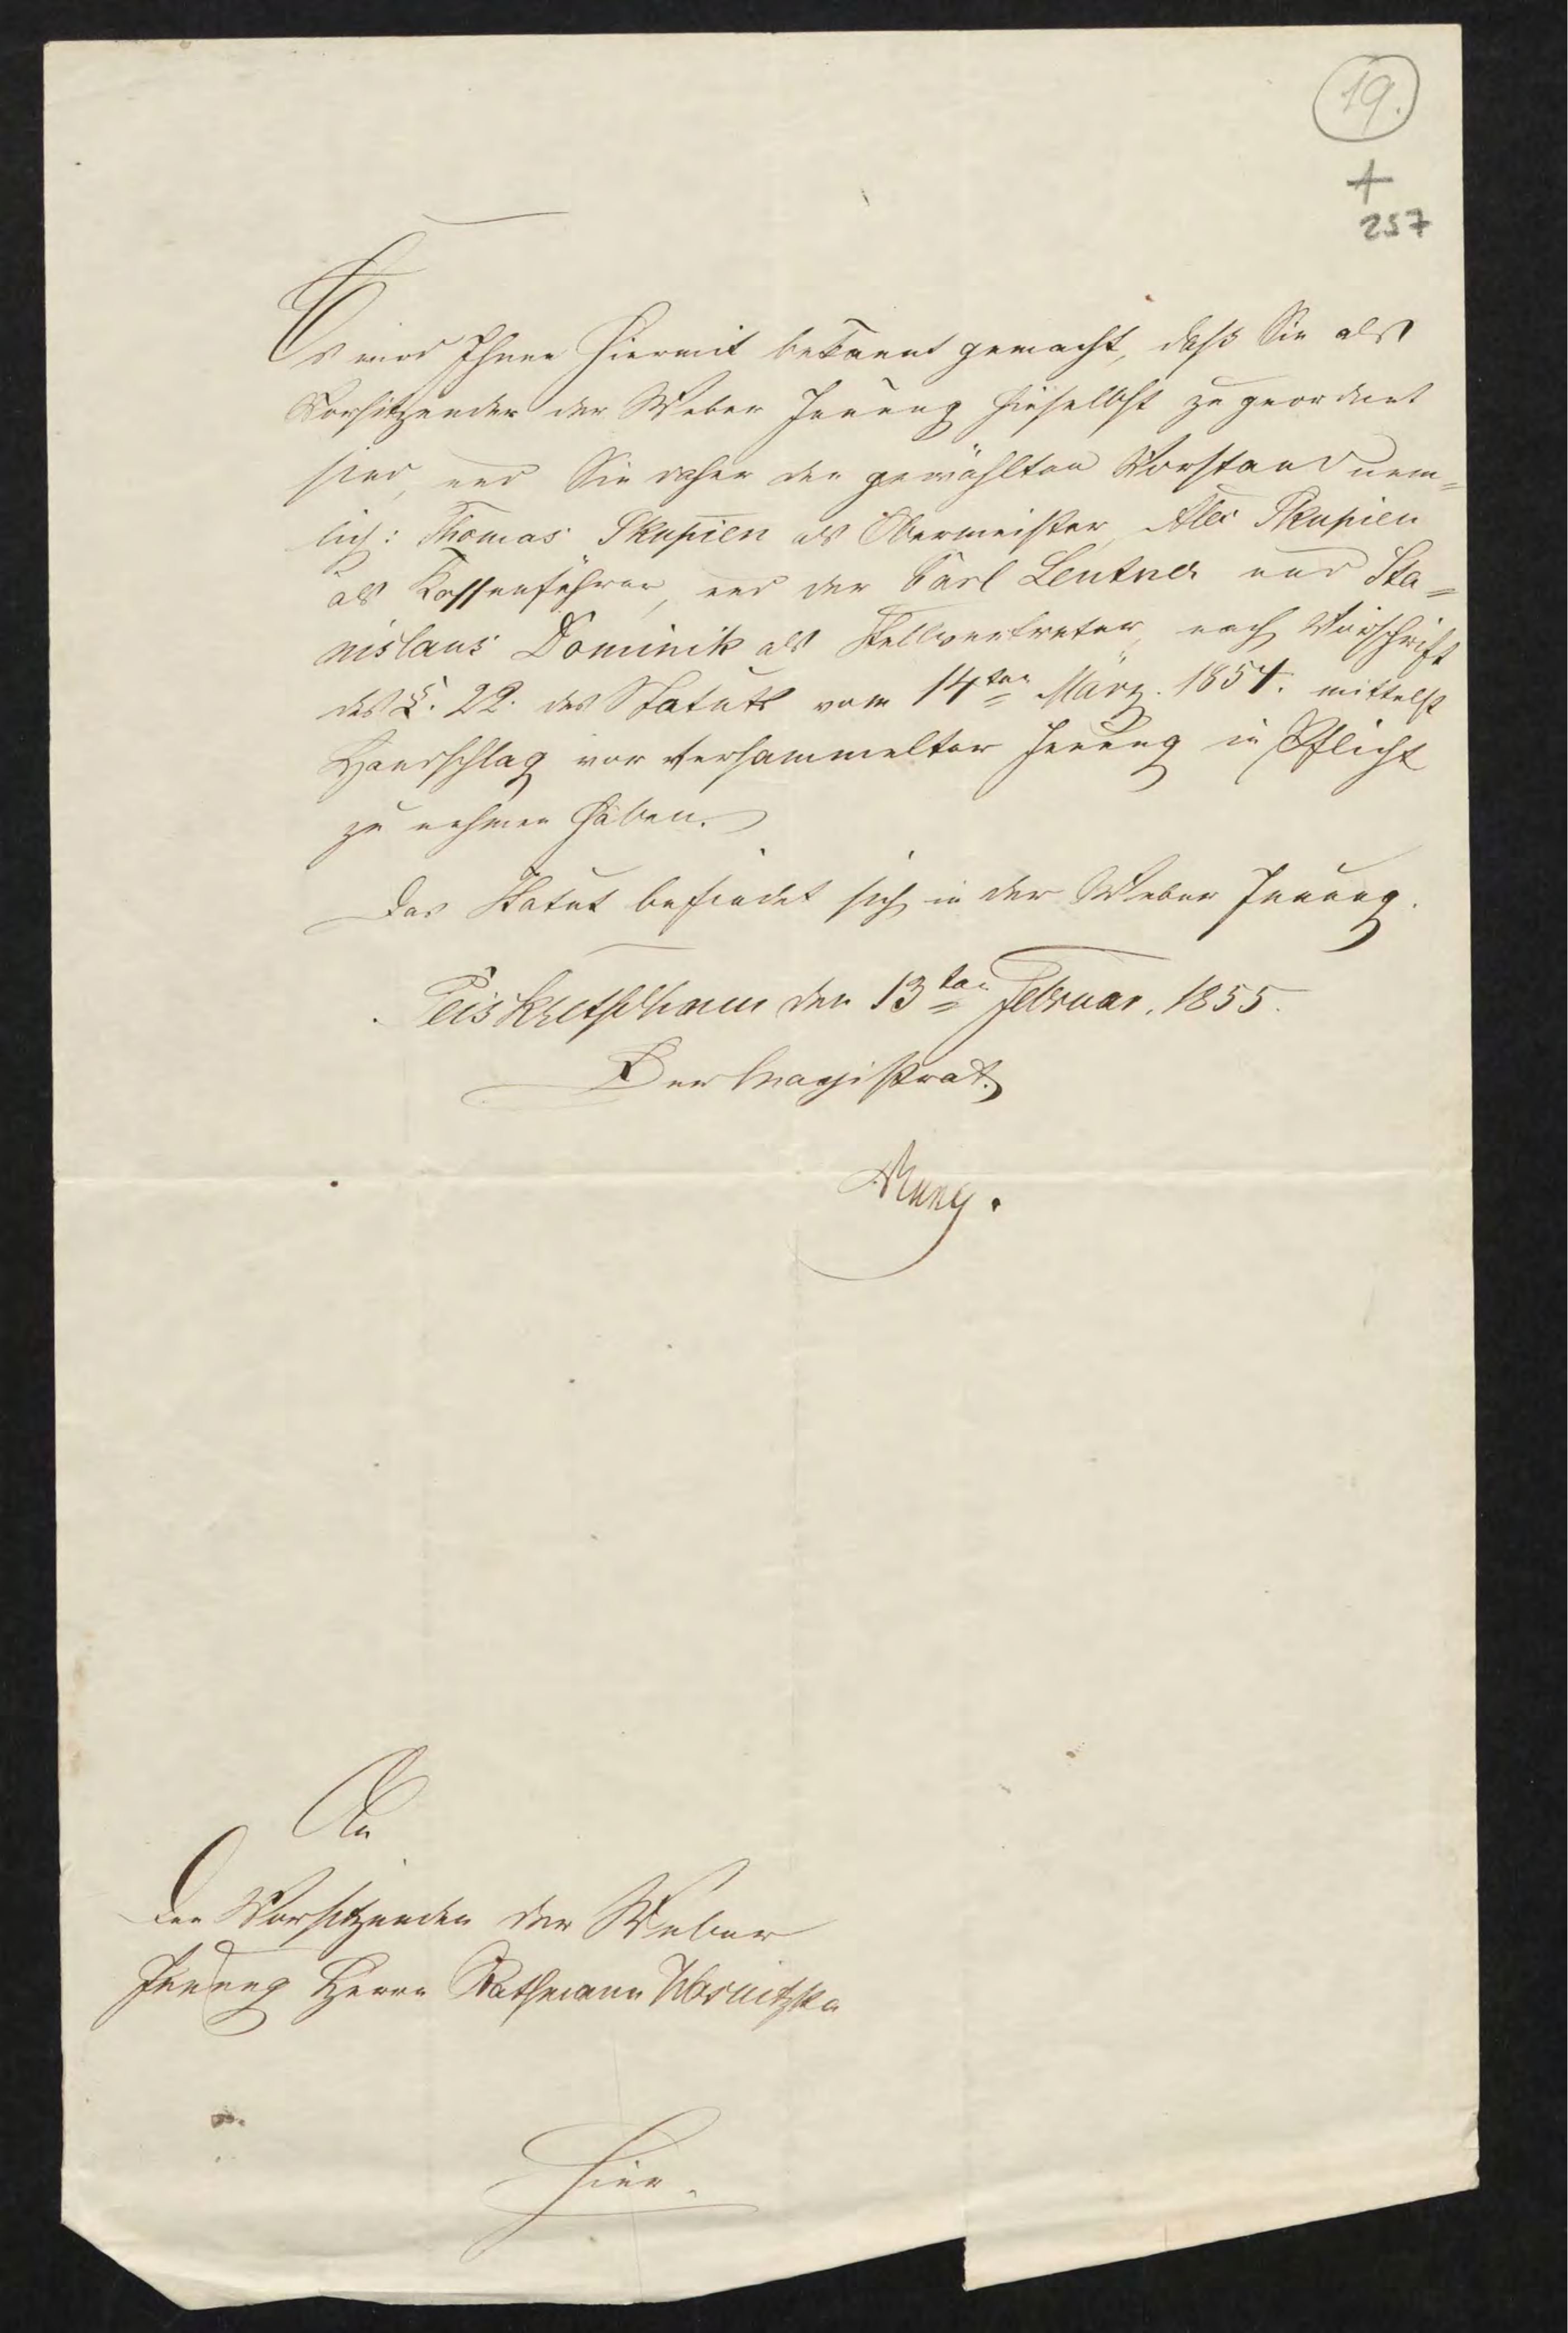 19.
257
Es wird Ihnen hiermit bekannt gemacht, daß Sie als
Vorsitzender der Weber Innung hieselbst zugeordnet
sind, und Sie daher den gewählten Vorstand nem=
lich: Thomas Skupien als Obermeister, Alex Skupien
als Kassenführer, und der Carl Leutner und Sta=
nislaus Dominik als Stellvertreter, nach Vorschrift
des §. 22. des Statuts vom 14ten März. 1854. mittelst
Handschlag vor versammelter Innung in Pflicht
zu nehmen haben.
Das Statut befindet sich in der Weber Innung.
Peiskretscham den 13ten Februar. 1855.
Der Magistrat.
An
den Vorsitzenden der Weber
Innung Herrn Rathmann
Hier.